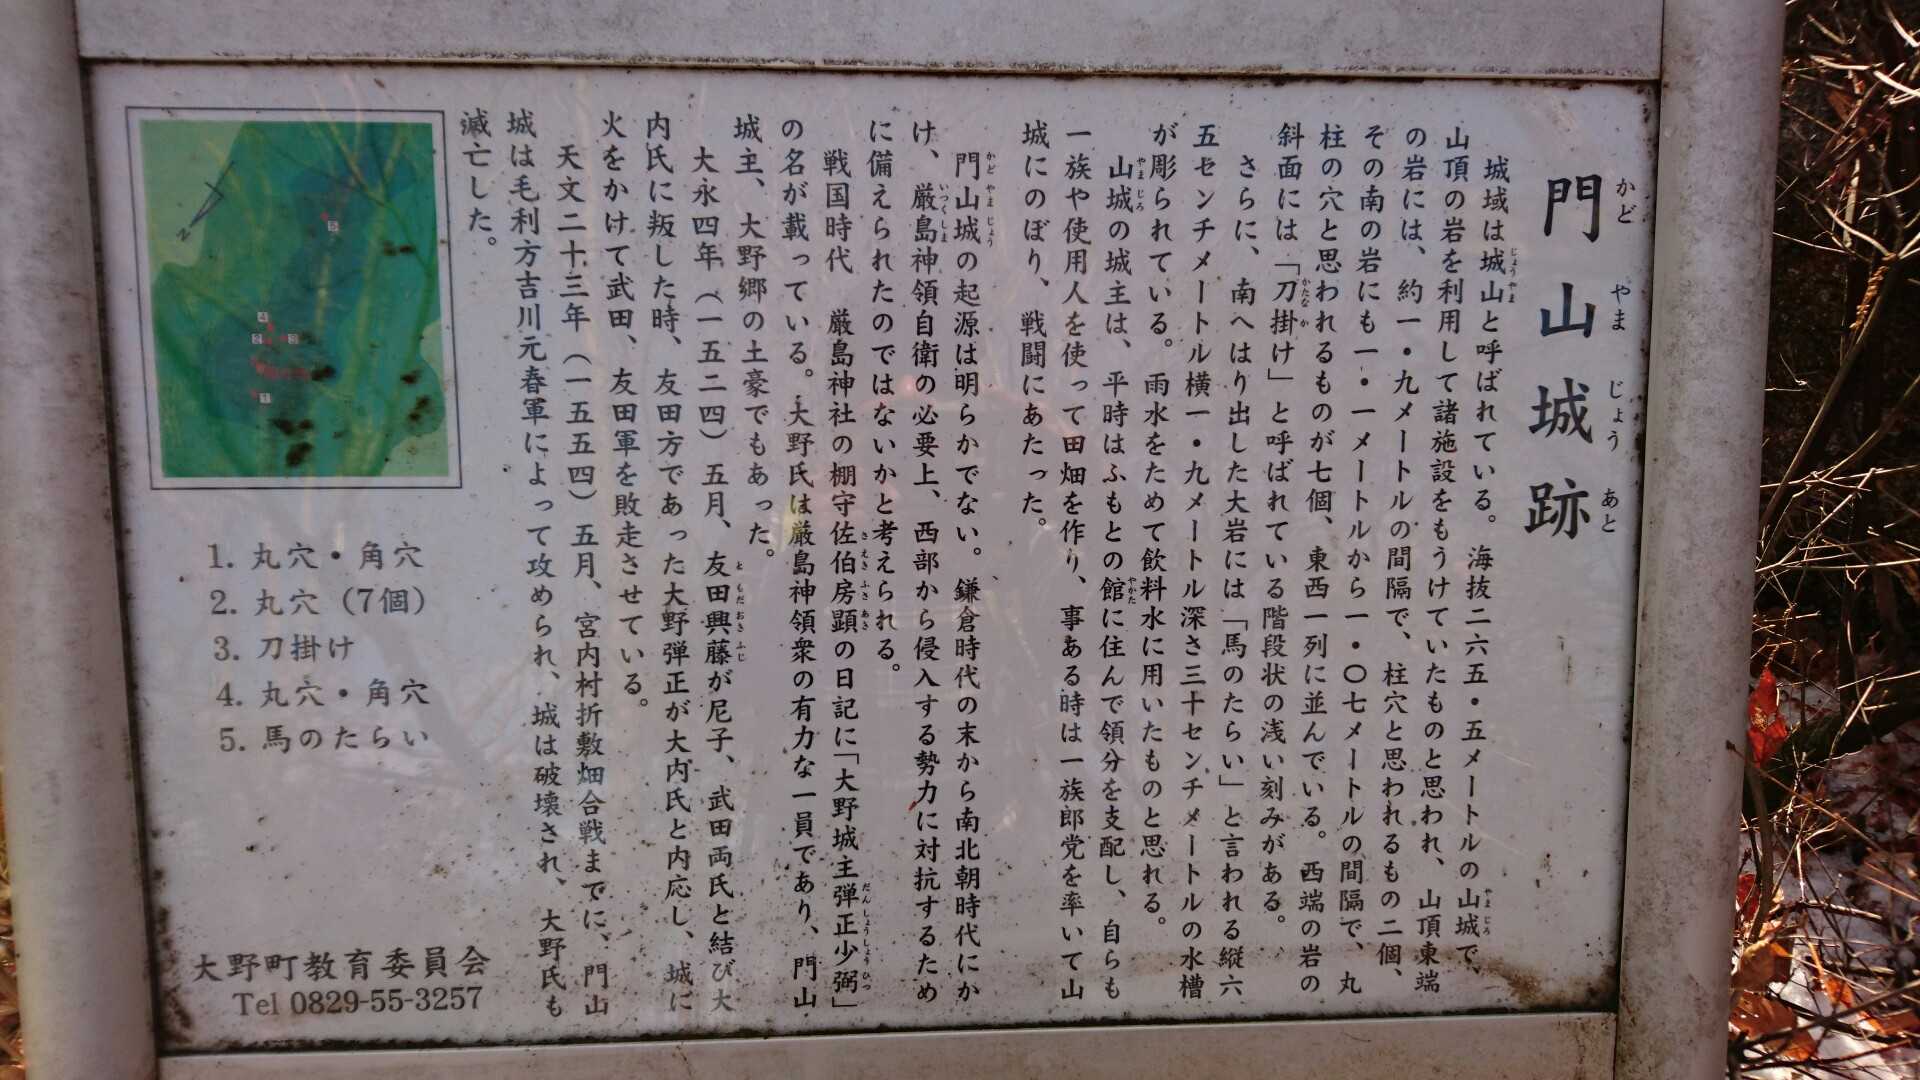 門山城跡
かど やま じょう あと
城域は城山と呼ばれている。海抜二六五・五メートルの山城で、
じょうやま
やまじろ
山頂の岩を利用して諸施設をもうけていたものと思われ、山頂東端
の岩には、約一・九メートルの間隔で、柱穴と思われるもの二個、
その南の岩にも一・一メートルから一・〇七メートルの間隔で、丸
柱の穴と思われるものが七個、東西一列に並んでいる。西端の岩の
斜面には「刀掛け」と呼ばれている階段状の浅い刻みがある。
かたなか
さらに、南へはり出した大岩には「馬のたらい」と言われる縦六
五センチメートル横一・九メートル深さ三十センチメートルの水槽
が彫られている。雨水をためて飲料水に用いたものと思れる。
山城の城主は、平時はふもとの館に住んで領分を支配し、自らも
やまじろ
やかた
一族や使用人を使って田畑を作り、事ある時は一族郎党を率いて山
城にのぼり、戦闘にあたった。
門山城の起源は明らかでない。鎌倉時代の末から南北朝時代にか
かどやまじょう
け、厳島神領自衛の必要上、西部から侵入する勢力に対抗するため
いつくしま
に備えられたのではないかと考えられる。
戦国時代 厳島神社の棚守佐伯房顕の日記に「大野城主弾正少弼」
さえきふさあき
だんしょうしょうひつ
の名が載っている。大野氏は厳島神領衆の有力な一員であり、門山
城主、大野郷の土豪でもあった。
大永四年(一五二四)五月、友田興藤が尼子、武田両氏と結び大
ともだおきふじ
内氏に叛した時、友田方であった大野弾正が大内氏と内応し、城に
火をかけて武田、友田軍を敗走させている。
天文二十三年(一五五四)五月、宮内村折敷畑合戦までに、門山
城は毛利方吉川元春軍によって攻められ、城は破壊され、大野氏も
滅亡した。
N
5
4
2
3
1
1. 丸穴・角穴
2. 丸穴(7個)
3. 刀掛け
4. 丸穴・角穴
5. 馬のたらい
大野町教育委員会
Tel 0829-55-3257